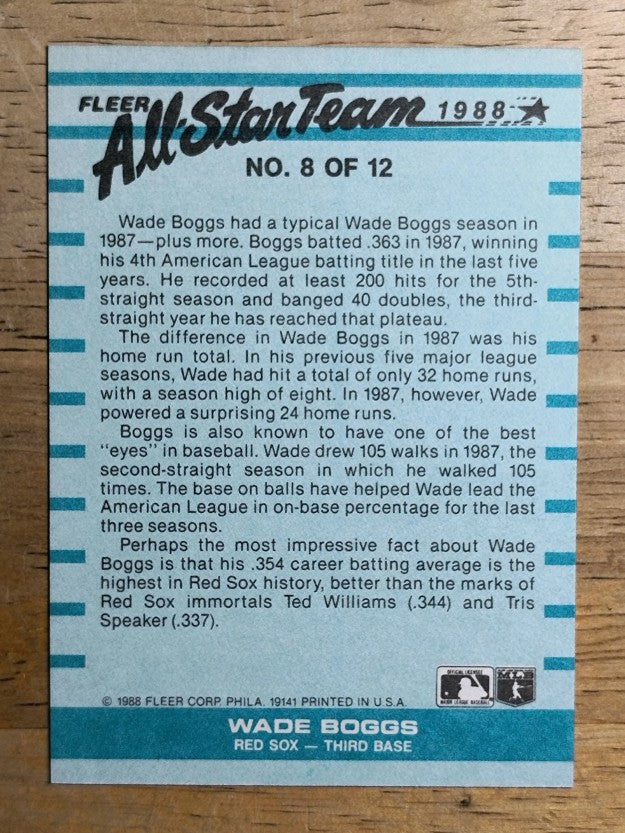 FLEER
All-Star Team 1988
NO. 8 OF 12
Wade Boggs had a typical Wade Boggs season in
1987—plus more. Boggs batted .363 in 1987, winning
his 4th American League batting title in the last five
years. He recorded at least 200 hits for the 5th-
straight season and banged 40 doubles, the third-
straight year he has reached that plateau.
The difference in Wade Boggs in 1987 was his
home run total. In his previous five major league
seasons, Wade had hit a total of only 32 home runs,
with a season high of eight. In 1987, however, Wade
powered a surprising 24 home runs.
Boggs is also known to have one of the best
"eyes" in baseball. Wade drew 105 walks in 1987, the
second-straight season in which he walked 105
times. The base on balls have helped Wade lead the
American League in on-base percentage for the last
three seasons.
Perhaps the most impressive fact about Wade
Boggs is that his .354 career batting average is the
highest in Red Sox history, better than the marks of
Red Sox immortals Ted Williams (.344) and Tris
Speaker (.337).
OFFICIAL LICENSEE
MAJOR LEAGUE BASEBALL
© 1988 FLEER CORP. PHILA. 19141 PRINTED IN U.S.A.
WADE BOGGS
RED SOX — THIRD BASE